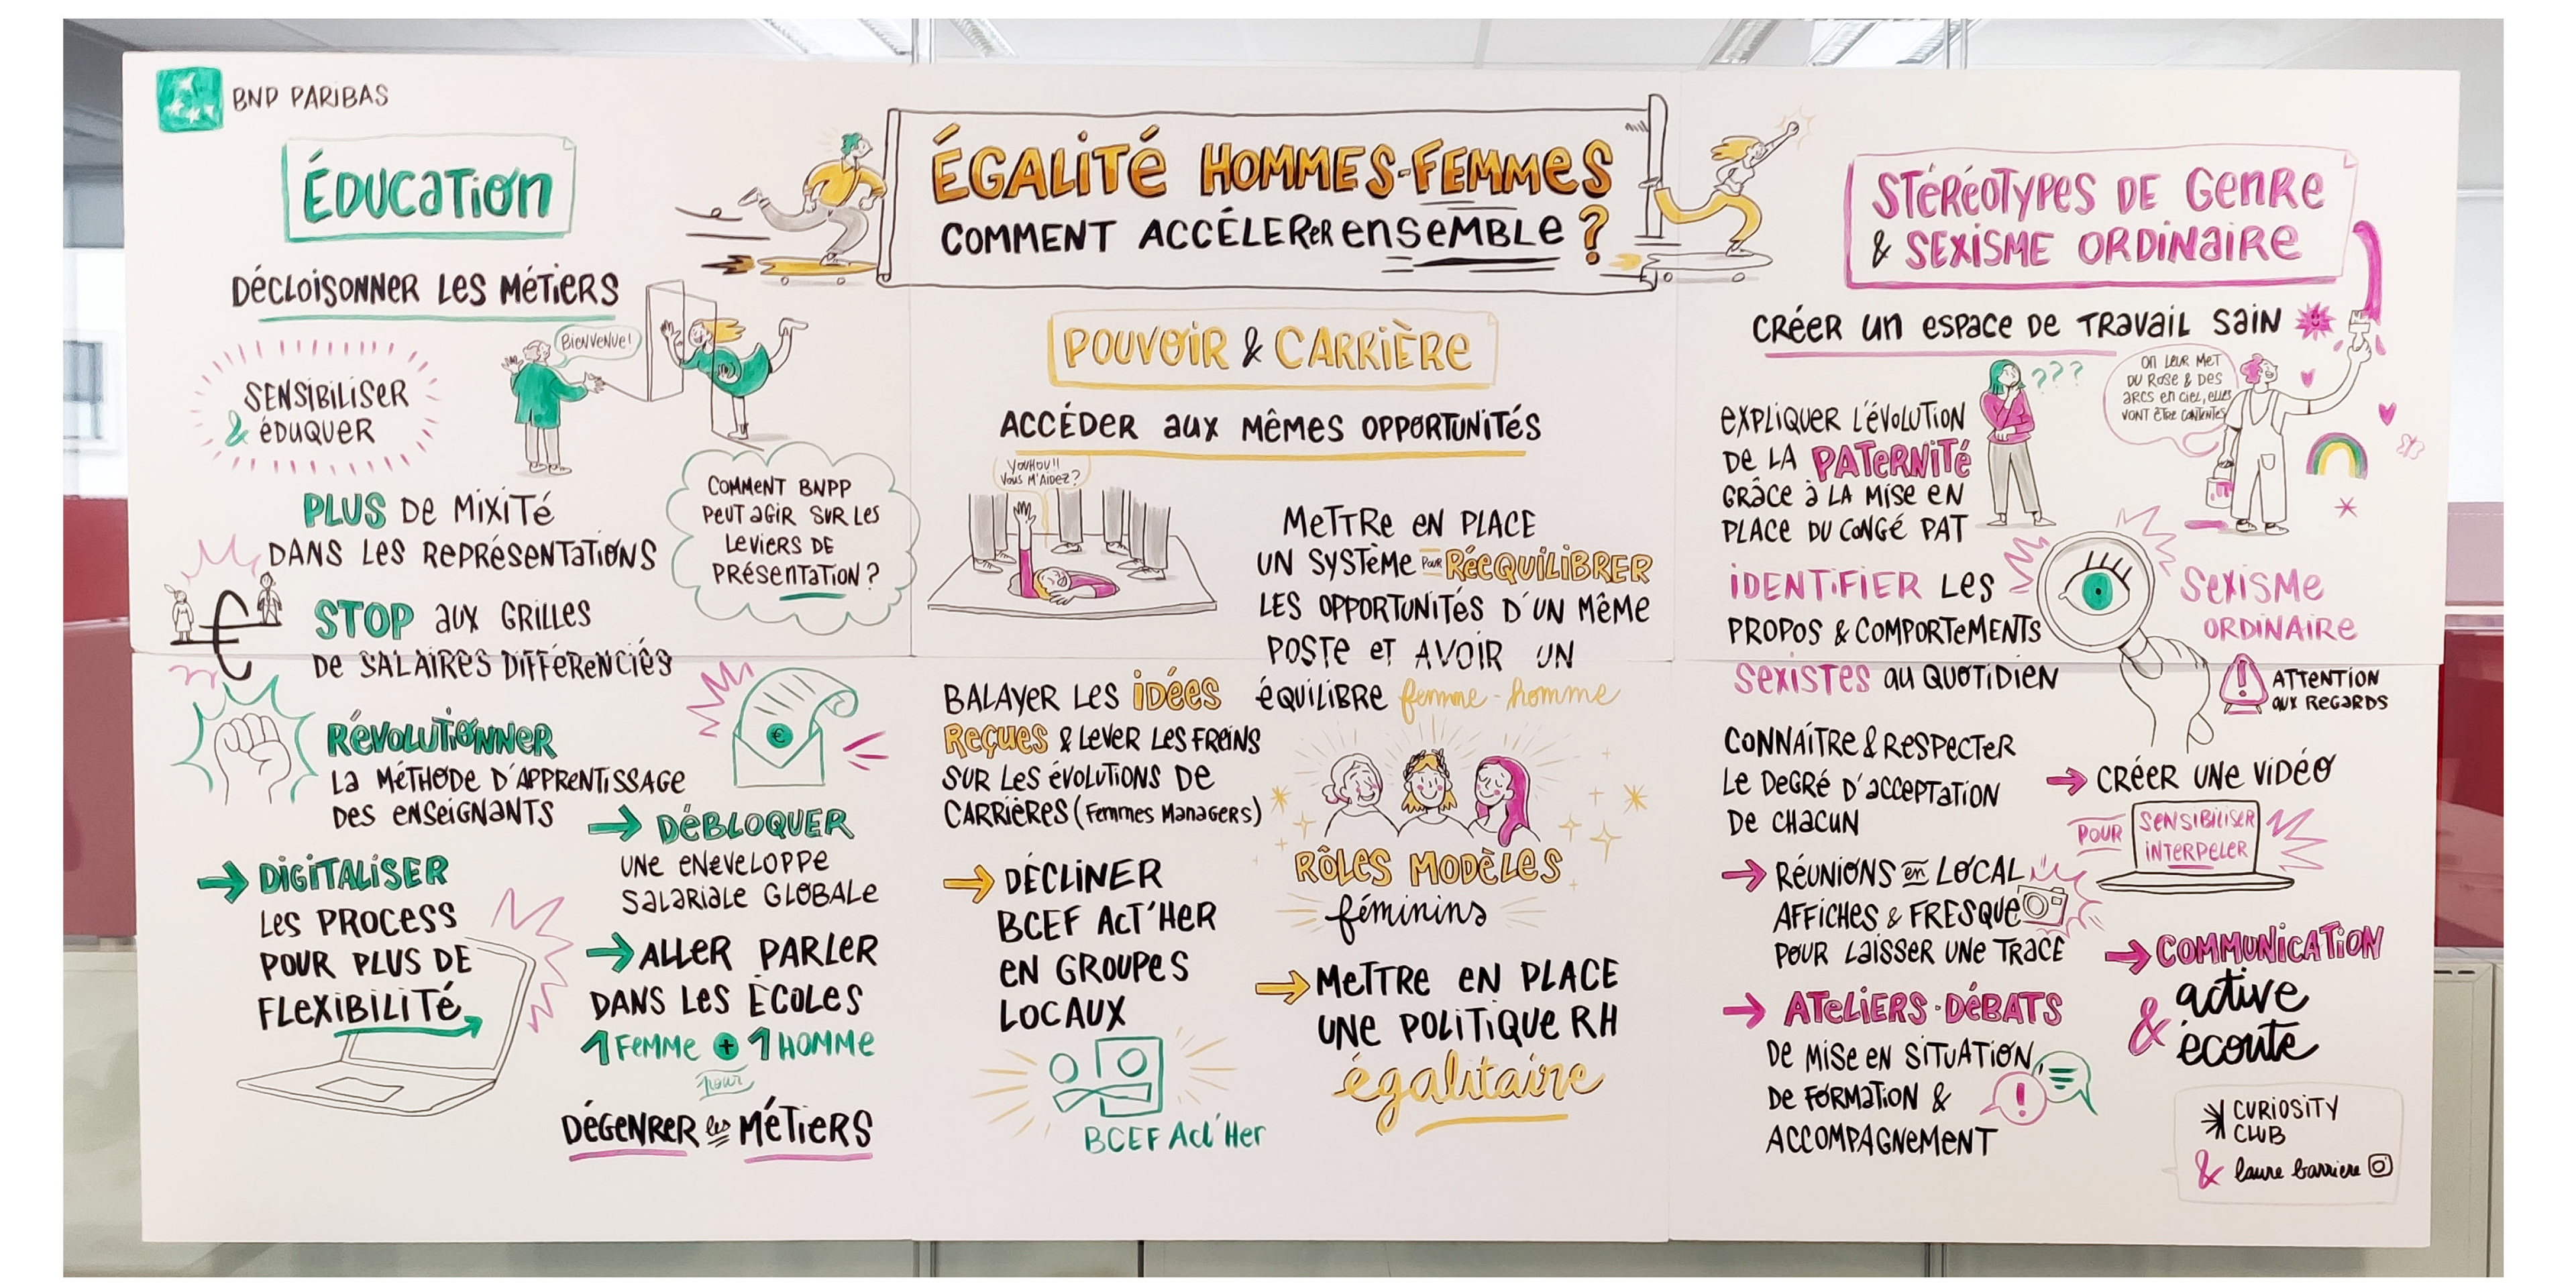 BNP PARIBAS
ÉGALITÉ HOMMES-FEMMES
COMMENT ACCÉLERER ENSEMBLE ?
ÉDUCATION
DÉCLOISONNER LES MÉTIERS
BIENVENUE!
SENSIBILISER
& ÉDUQUER
PLUS DE MIXITÉ
DANS LES REPRÉSENTATIONS
COMMENT BNPP
PEUT AGIR SUR LES
LEVIERS DE
PRÉSENTATION ?
€
STOP AUX GRILLES
DE SALAIRES DIFFÉRENCIÉS
RÉVOLUTIONNER
LA MÉTHODE D'APPRENTISSAGE
DES ENSEIGNANTS
€
→ DIGITALISER
LES PROCESS
POUR PLUS DE
FLEXIBILITÉ
→ DÉBLOQUER
UNE ENEVELOPPE
SALARIALE GLOBALE
→ ALLER PARLER
DANS LES ÉCOLES
1 FEMME + 1 HOMME
pour
DÉGENRER les MÉTIERS
POUVOIR & CARRIÈRE
ACCÉDER AUX MÊMES OPPORTUNITÉS
YOUHOU!!
VOUS M'AIDEZ?
METTRE EN PLACE
UN SYSTÈME POUR RÉÉQUILIBRER
LES OPPORTUNITÉS D'UN MÊME
POSTE ET AVOIR UN
ÉQUILIBRE femme-homme
BALAYER LES IDÉES
REÇUES & LEVER LES FREINS
SUR LES ÉVOLUTIONS DE
CARRIÈRES (FEMMES MANAGERS)
→ DÉCLINER
BCEF ACT'HER
EN GROUPES
LOCAUX
BCEF Act'Her
RÔLES MODÈLES
féminins
→ METTRE EN PLACE
UNE POLITIQUE RH
égalitaire
STÉRÉOTYPES DE GENRE
& SEXISME ORDINAIRE
CRÉER UN ESPACE DE TRAVAIL SAIN
???
ON LEUR MET
DU ROSE & DES
ARCS EN CIEL, ELLES
VONT ÊTRE CONTENTES
EXPLIQUER L'ÉVOLUTION
DE LA PATERNITÉ
GRÂCE À LA MISE EN
PLACE DU CONGÉ PAT
IDENTIFIER LES
PROPOS & COMPORTEMENTS
SEXISTES AU QUOTIDIEN
SEXISME
ORDINAIRE
! ATTENTION
AUX REGARDS
CONNAÎTRE & RESPECTER
LE DEGRÉ D'ACCEPTATION
DE CHACUN
→ RÉUNIONS en LOCAL
AFFICHES & FRESQUE
POUR LAISSER UNE TRACE
→ ATELIERS-DÉBATS
DE MISE EN SITUATION,
DE FORMATION &
ACCOMPAGNEMENT
!
→ CRÉER UNE VIDÉO
POUR SENSIBILISER
INTERPELER
→ COMMUNICATION
active
& écoute
CURIOSITY
CLUB
& laure barriere